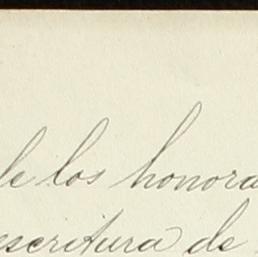 de los honora
escritura de